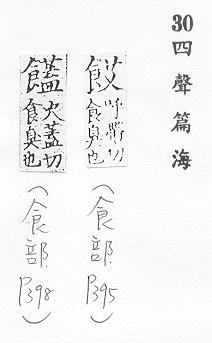 30 四聲篇海
餀
呼帶切
食臭也
(食部 P395)
饚
火蓋切
食臭也
(食部 P398)